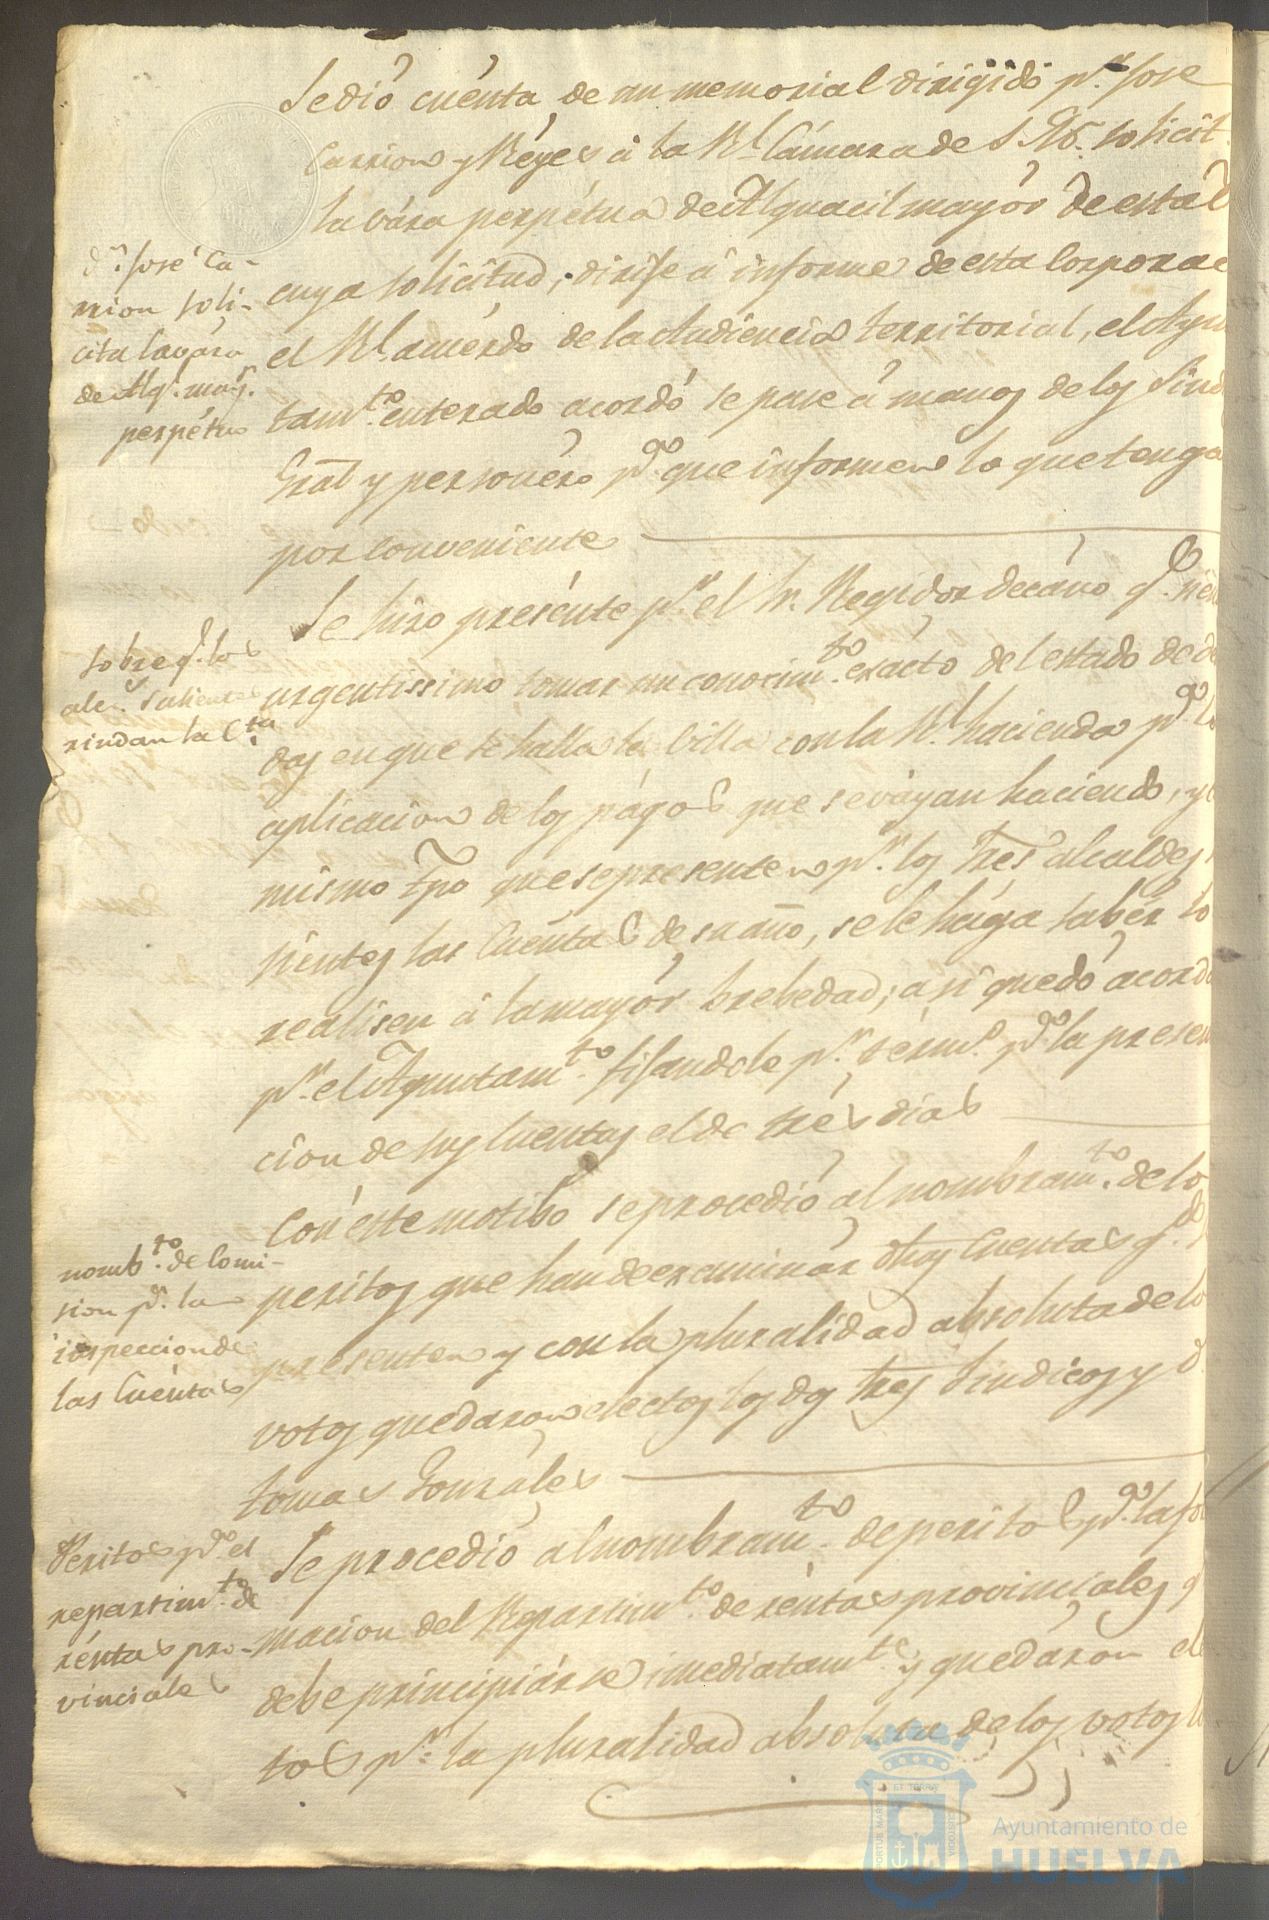 Se dió cuenta de un memorial dirigido pr. Jose
Carrion y Reyes á la Rl. Cámara de S. M. solicit
la vára perpétua de Alguacil mayór de esta
cuya solicitud, dirije á informe de esta Corporac
el Rl. acuerdo de la Audiencia territorial, el Ayun
tamto. enterado acordó se pase á manos de los Sind
Gral y personéro pa. que informen lo que tenga
por conveniente
dn. José Ca-
rrion soli-
cita la vára
de Alg. mayr.
perpétuo
Se hizo presénte pr. el Sr. Regidor decáno q. sien
urgentissimo tomar un conocimto. exácto del estado de de
das en que se halla la Villa con la Rl. hacienda pa. la
aplicacion de los págos que se váyan haciendo, y
mismo tpo que se presenten pr. los Sres. alcaldes
lientes las Cuentas de su año, se le hága sabér lo
realisen á la mayór brebedad; asi quedó acorda
pr. el Ayuntamto. fijandole pr. térmo. pa. la presen
cion de sus Cuentas el de tres dias
sobre q. los
ales. salientes
rindan la Cta.
Con este motibo se procedió al nombramto. de lo
peritos que han de examinár dhas Cuentas q.do
presenten y con la pluralidad absoluta de lo
votos quedaron electos los dos Sres Sindicos y d.
tomas Gonzales
nombto. de Comi-
sion pa. la
inspeccion de
las Cuentas
Se procedió al nombramto. de peritos pa. la for
macion del Repartimto. de réntas provinciales q
debe principiárse imediatamte. y quedáron elec
tos pr. la pluralidad absoluta de los votos lo
Peritos pa. el
repartimto. de
réntas pro-
vinciales
PORTUS MARIS ET TERRE CUSTODIA
Ayuntamiento de
HUELVA